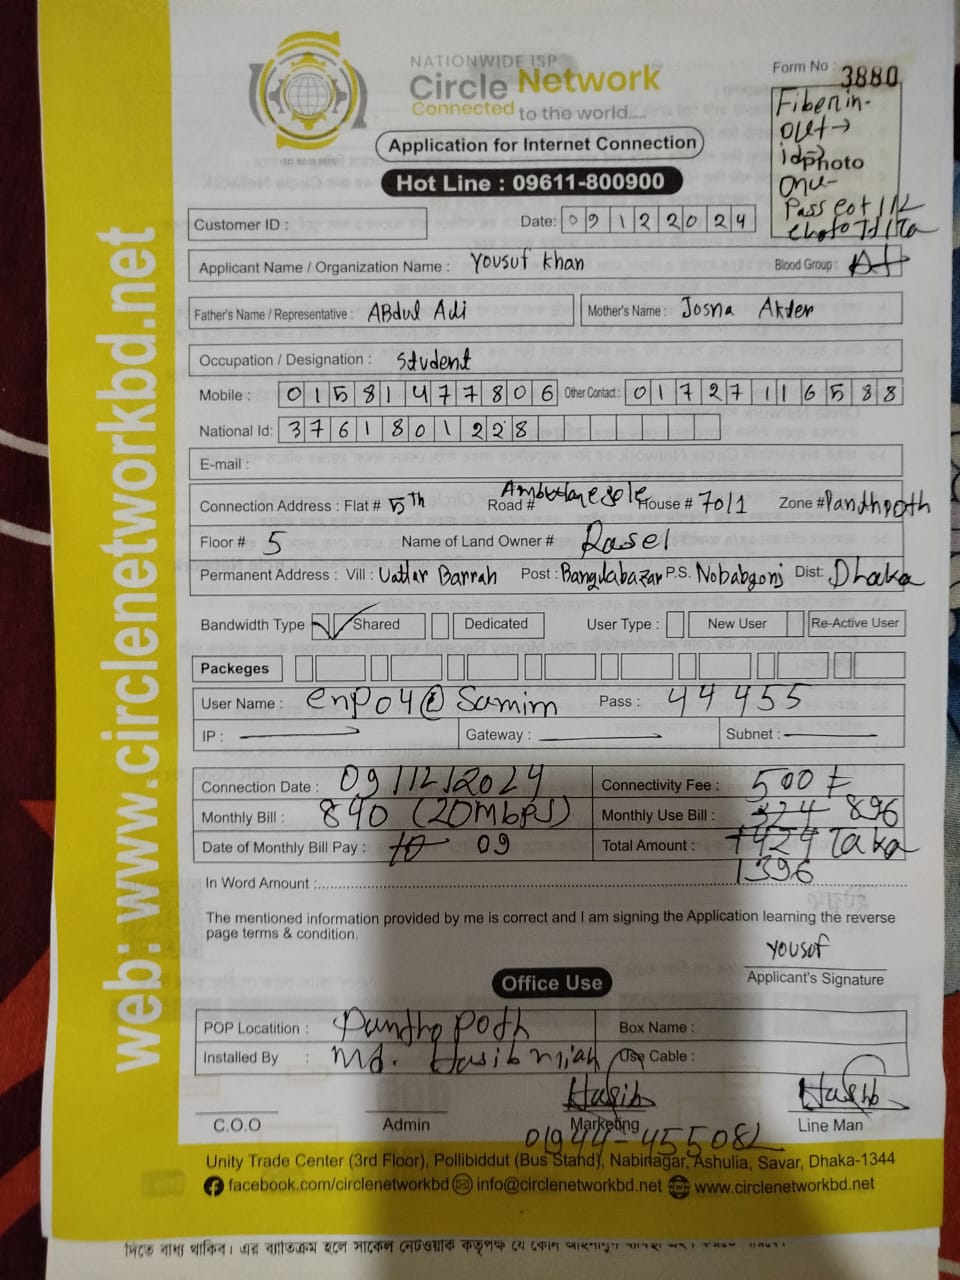 NATIONWIDE ISP
Circle Network
Connected to the world....
ISO 9001:2015
Application for Internet Connection
Hot Line : 09611-800900
Form No : 3880
Fiber in-
Out →
id →
photo
Onu-
Customer ID :
Date: 09122024
Applicant Name / Organization Name : Yousuf Khan
Blood Group : A+
Father's Name / Representative : ABdul Adi
Mother's Name : Josna Akter
Occupation / Designation : Student
Mobile : 01581477806
Other Contact : 01727116588
National Id: 3761801228
E-mail :
Connection Address : Flat # 5th Road # House # 70/1 Zone # Panthpoth
Floor # 5 Name of Land Owner # Rasel
Permanent Address : Vill : Uatlar Barrah Post : Bangdabazar P.S. Nobabgonj Dist: Dhaka
Bandwidth Type Shared Dedicated User Type : New User Re-Active User
Packeges
User Name : enp04@Samim Pass : 44455
IP : Gateway : Subnet :
Connection Date : 09/12/2024 Connectivity Fee : 500 ৳
Monthly Bill : 840 (20MbPS) Monthly Use Bill : 324 896
Date of Monthly Bill Pay : 10 09 Total Amount : 1424 Taka
1396
In Word Amount :
The mentioned information provided by me is correct and I am signing the Application learning the reverse
page terms & condition.
Yousof
Applicant's Signature
Office Use
POP Locatition : Panthopoth Box Name :
Installed By : Md. Hasib miah Use Cable :
Hasib Hasib
C.O.O Admin Marketing Line Man
01944-455082
Unity Trade Center (3rd Floor), Pollibiddut (Bus Stand), Nabinagar, Ashulia, Savar, Dhaka-1344
facebook.com/circlenetworkbd info@circlenetworkbd.net www.circlenetworkbd.net
web: www.circlenetworkbd.net